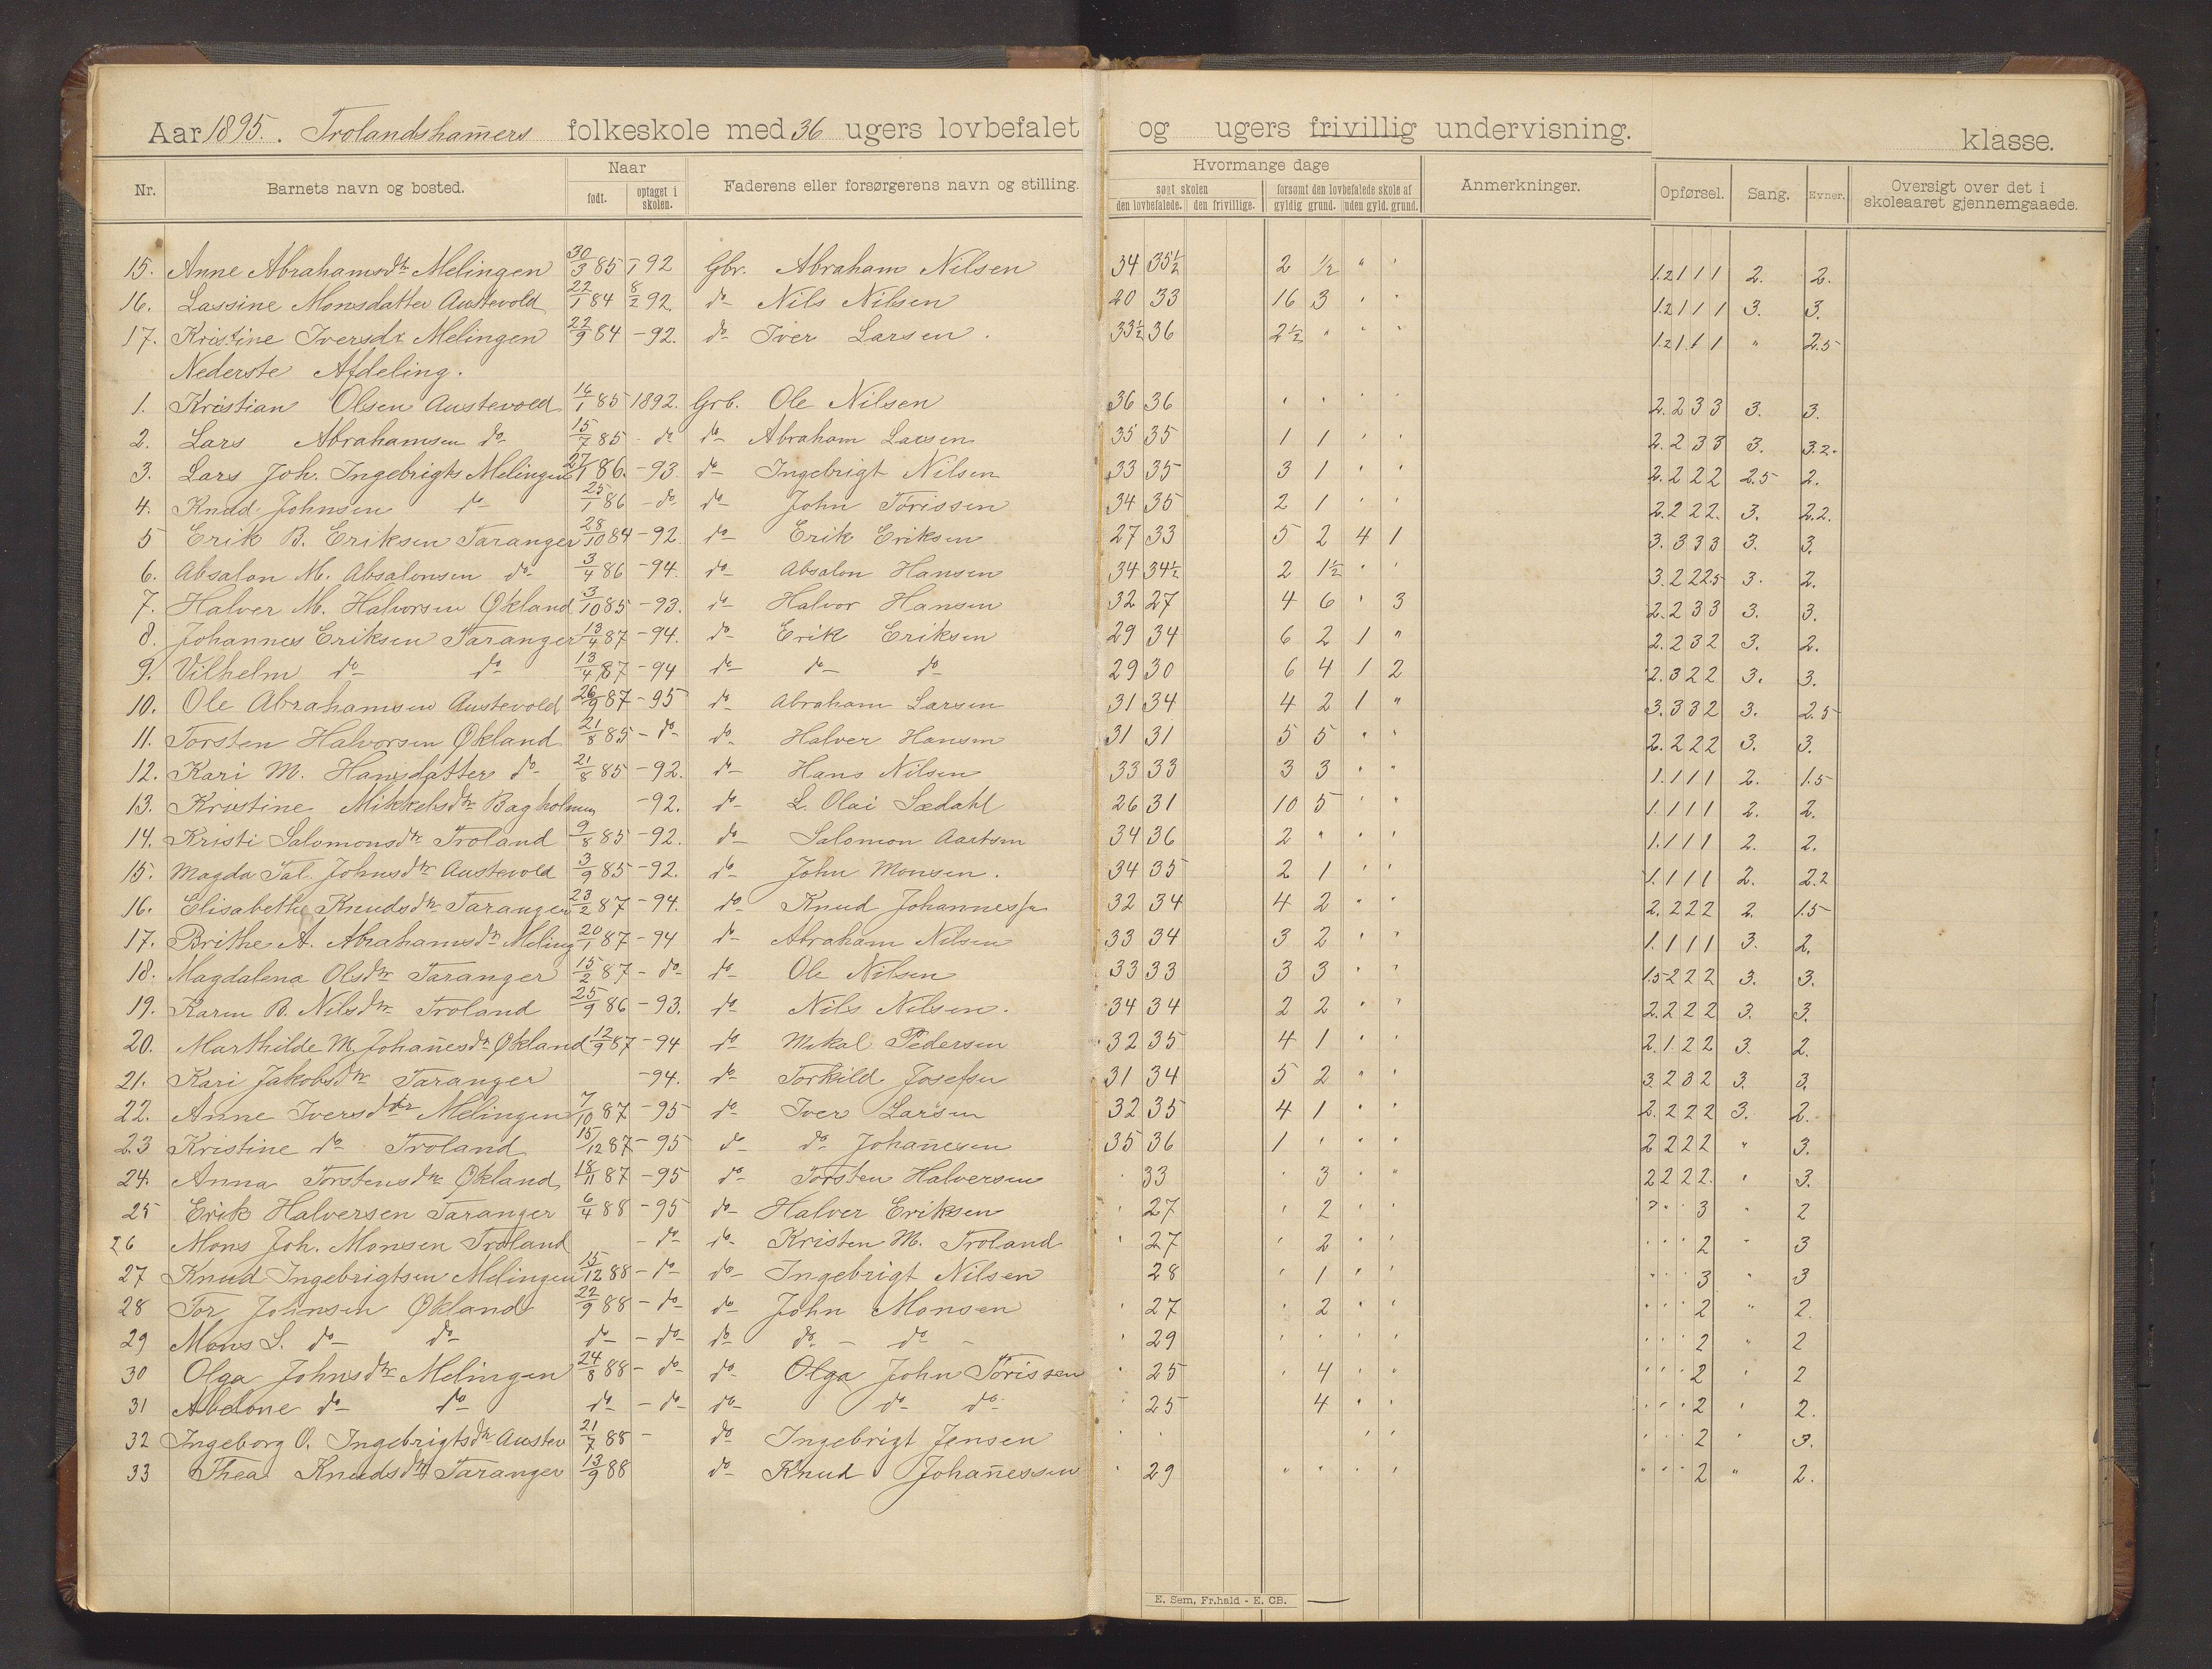 Aar 1895. Trolandshamers folkeskole med 36 ugers lovbefalet og ugers frivillig undervisning. klasse.
Nr. Barnets navn og bosted. Naar født. optaget i skolen. Faderens eller forsørgerens navn og stilling. Hvormange dage søgt skolen den lovbefalede. den frivillige. forsømt den lovbefalede skole af gyldig grund. uden gyld. grund. Anmerkninger. Opførsel. Sang. Evner. Oversigt over det i skoleaaret gjennemgaaede.
15. Anne Abrahamsdtr Melingen 30/3 85 92 Gbr. Abraham Nilsen 34 35½ 2 ½ " " 1.2 1 1 1 2. 2.
16. Lassine Monsdatter Austevold 22/1 84 8/2 92. do Nils Nilsen 20 33 16 3 " " 1.2 1 1 1 3. 3.
17. Kristine Iversdr Melingen 22/9 84 - 92. do Iver Larsen. 33½ 36 2½ " " " 1.2 1 1 1 " 2.5
Nederste Afdeling.
1. Kristian Olsen Austevold 16/1 85 1892. Grb. Ole Nilsen 36 36 " " " " 2. 2 3 3 3. 3.
2. Lars Abrahamsen do 15/7 85 - do do Abraham Larsen 35 35 1 1 " " 2. 2 3 3 3. 3.2.
3. Lars Joh. Ingebrigts Melingen 27/1 86. - 93. do Ingebrigt Nilsen 33 35 3 1 " " 2. 2 2 2 2.5 2.
4. Knud Johnsen do 25/1 86 - do do John Torissen 34 35 2 1 " " 2. 2 2 2. 3. 2.2.
5 Erik B. Eriksen Taranger 28/10 84 - 92. do Erik Eriksen 27 33 5 2 4 1 3. 3 3 3 3. 3.
6. Absalon M. Absalonsen do 3/4 86 - 94. do Absalon Hansen 34 34½ 2 1½ " " 3. 2 2 2.5 3. 2.
7. Halver M. Halvorsen Økland 3/10 85 - 93. do Halvor Hansen 32 27 4 6 " 3 2. 2 3 3 3. 3.
8. Johannes Eriksen Taranger 13/4 87 - 94. do Erik Eriksen 29 34 6 2 1 " 2. 2 3 2 3. 2.
9. Vilhelm do do 13/4 87 - 94 do do do 29 30 6 4 1 2 2. 3 2 2 3. 3.
10. Ole Abrahamsen Austevold 26/9 87 - 95 do Abraham Larsen 31 34 4 2 1 " 3. 3 3 2 3. 2.5
11. Torsten Halvorsen Økland 21/8 85 - do do Halver Hansen 31 31 5 5 " " 2. 2 2 2 3. 3.
12. Kari M. Hansdatter do 21/8 85 - 92. do Hans Nilsen 33 33 3 3 " " 1. 1 1 1 2. 1.5
13. Kristine Mikkelsdtr Bagholmen - 92. do L. Olai Sædahl 26 31 10 5 " " 1. 1 1 1 2. 2.
14. Kristi Salomonsdtr Troland 9/8 85 - 92. do Salomon Aartsen 34 36 2 " " " 1. 1 1 1 2. 2.
15. Magda Tal. Johnsdtr Austevold 3/9 85 - 92. do John Monsen. 34 35 2 1 " " 1. 1 1 1 2. 2.2
16. Elisabethe Knudsdtr Taranger 23/2 87 - 94. do Knud Johannessen 32 34 4 2 " " 2. 2 2 2 2. 1.5
17. Brithe A. Abrahamsdtr Meling 20/1 87 - 94 do Abraham Nilsen 33 34 3 2 " " 1. 1 1 1 3. 2.
18. Magdalena Olsdtr Taranger 15/2 87 - do do Ole Nilsen 33 33 3 3 " " 1.5 2 2 2 3. 3.
19. Karen B. Nilsdtr Troland 25/9 86 - 93. do Nils Nilsen. 34 34 2 2 " " 2. 2 2 2 3. 3.
20. Marthilde M. Johanesdtr Økland 12/9 87 - 94 do Mikal Pedersen 32 35 4 1 " " 2. 1. 2 2 3. 2.
21. Kari Jakobsdtr Taranger - 94. do Torkild Josefsen 31 34 5 2 " " 3. 2 3 2 3. 3.
22. Anne Iversdtr Melingen 7/10 87 - 95 do Iver Larsen 32 35 4 1 " " 2. 2 2 2 3. 2.
23 Kristine do Troland 15/12 87 - 95 do do Johanesen 35 36 1 " " " 2 2 2 2 " 3.
24. Anna Torstensdtr Økland 18/11 87 - 95 do Torsten Halversen " 33 " 3 " " 2 2 2 2. " 3.
25 Erik Halversen Taranger 6/4 88 - 95 do Halver Eriksen " 27 " 2 " " " " 3 " 2
26 Mons Joh. Monsen Troland - do do Kristen M. Troland " 27 " 2 " " " " " 2 " 3
27 Knud Ingebrigtsen Melingen 15/12 88 - do do Ingebrigt Nilsen 28 " 1 " " " " " 3 " 3
28 Tor Johnsen Økland 22/9 88 - do do John Monsen " 27 " 2 " " " " " 2 " 2.
29 Mons S. do do do - do do do - do - " 29 " " " " " " " 2 " 2
30 Olga Johnsdtr Melingen 24/8 88 - do do Olga John Torissen " 25 " 4 " " " " " 2 " 2
31 Abelone do do do - do do do do " 25 4 " " " " " 2 " 2.
32 Ingeborg O. Ingebrigtsdtr Austev 21/7 88 - do Ingebrigt Jensen " " " " " " " 2 " 3.
33 Thea Knudsdtr Taranger 13/9 88 do Knud Johanessen " 29 " " " " " " " 2 " 2.
E. Sem, Fr.hald - E. CB.